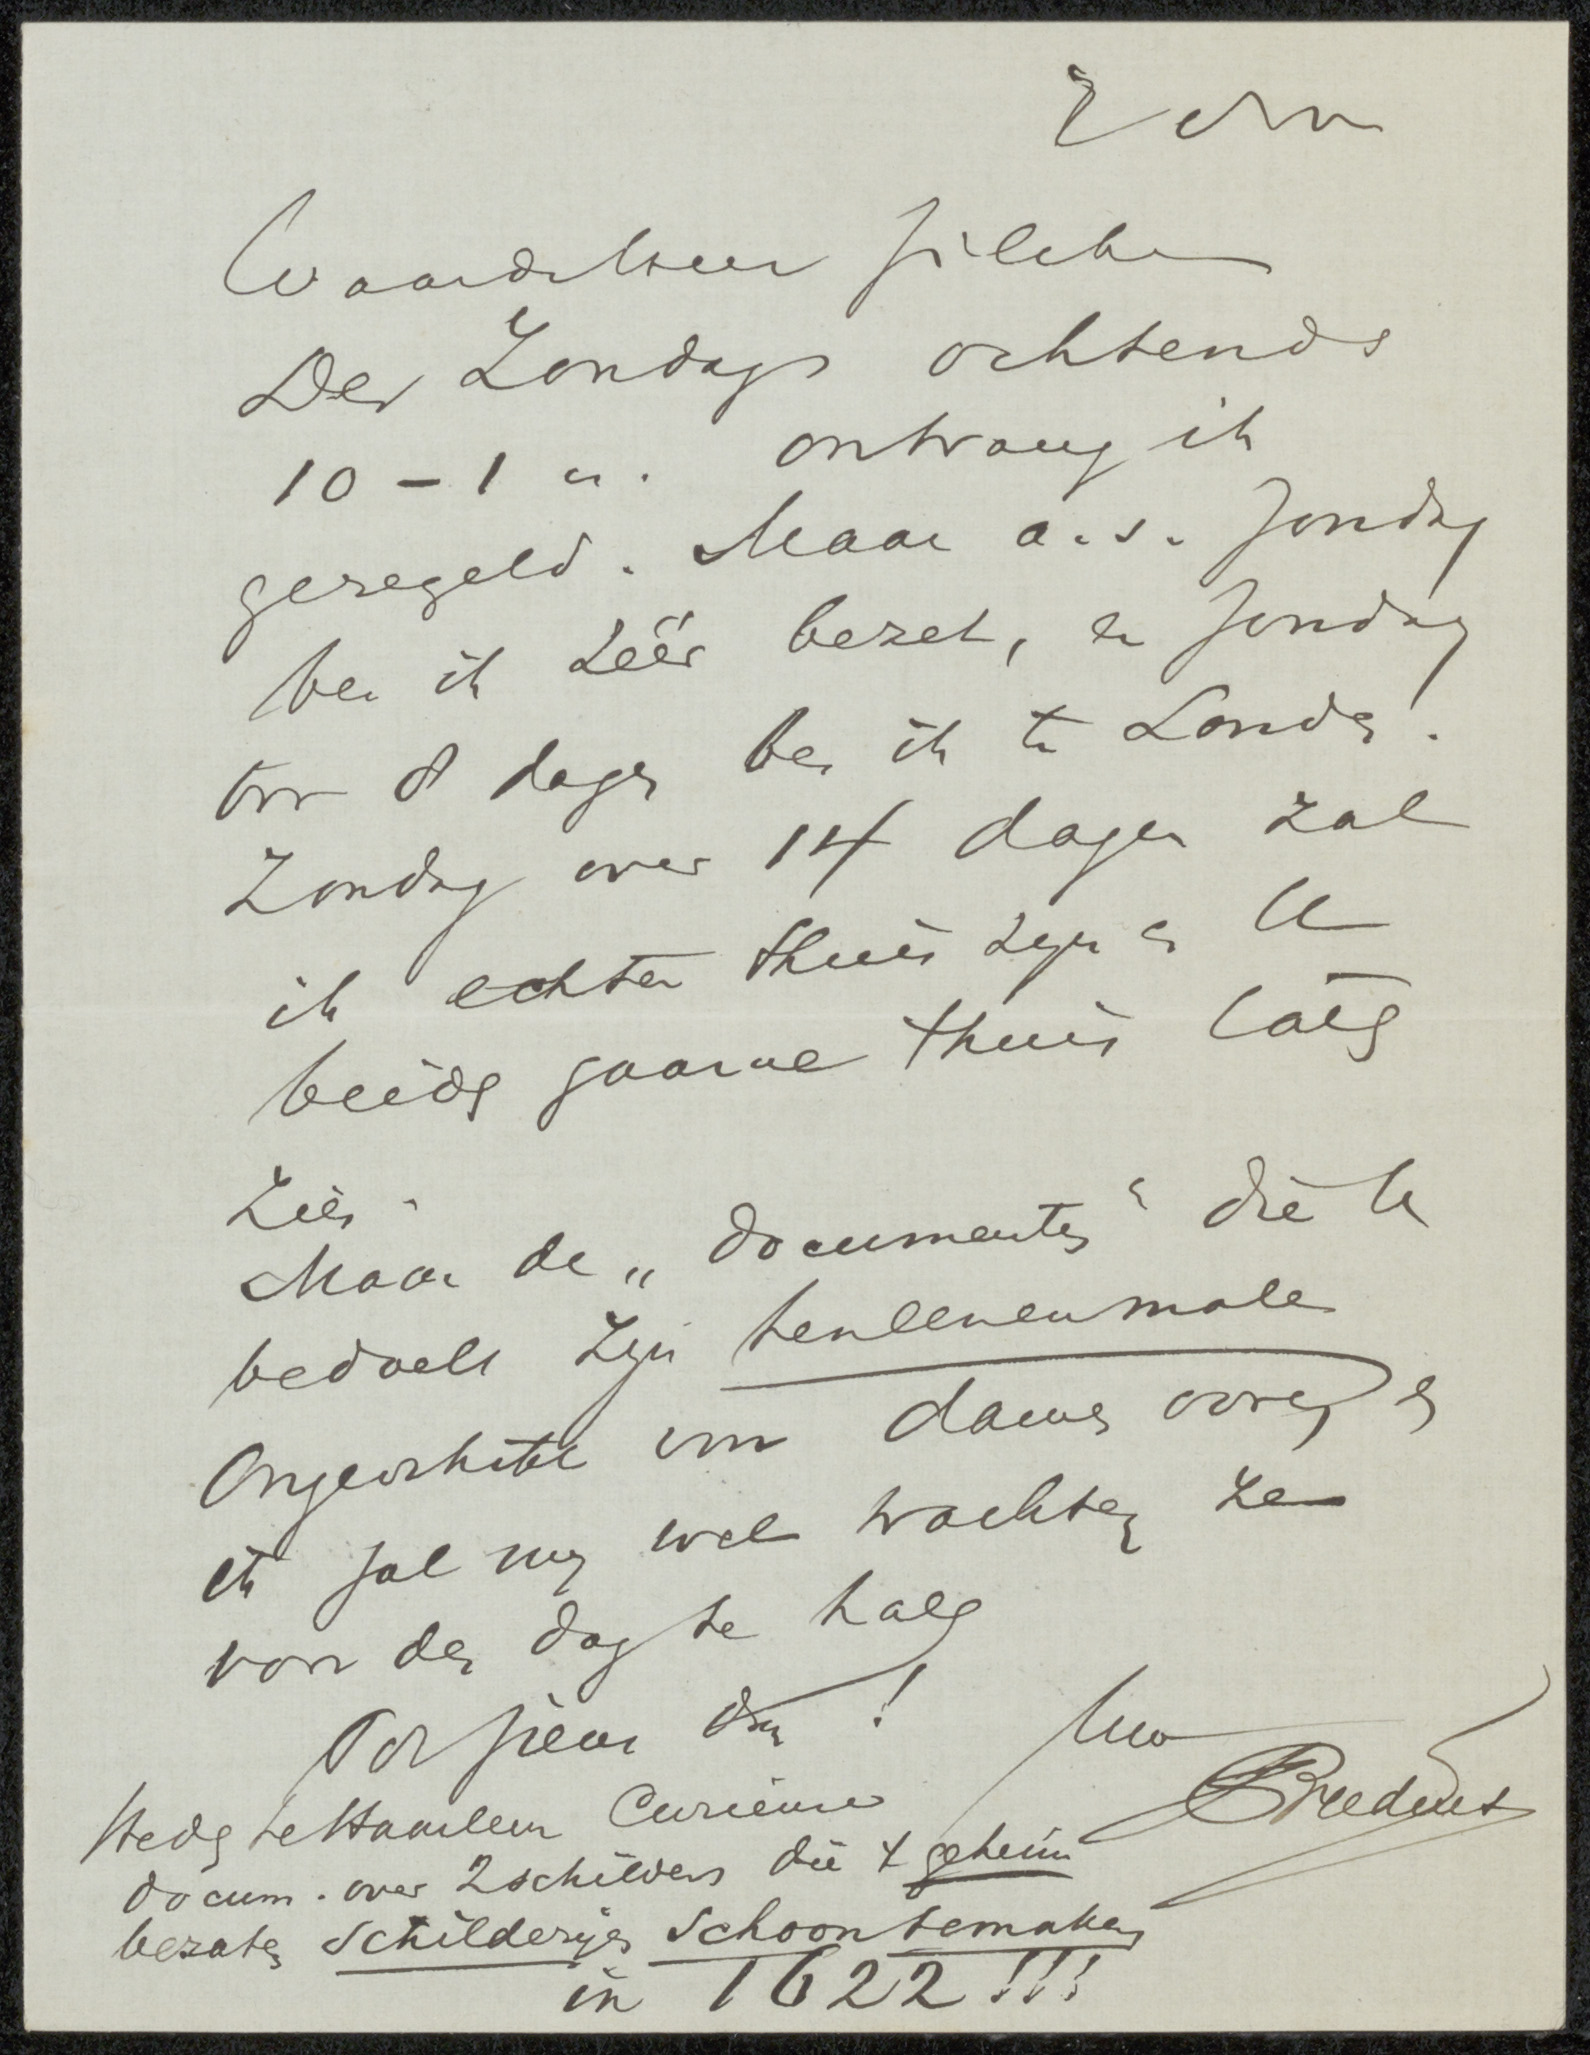 Waarde Heer Zilcken
Des Zondags ochtends
10 – 1 u. ontvang ik
geregeld. Maar a.s. Zondag
ben ik zéér bezet, en Zondag
over 8 dagen ben ik te Londen.
Zondag over 14 dagen zal
ik echter thuis zyn en U
beiden gaarne thuis laten
zien.
Maar de „documenten“ die U
bedoelt zyn tenleenenmale
ongeschikt voor dames ooren en
ik zal my wel wachten ze
voor den dag te halen
Tot ziens dan! Uw
ABredius
Heden te Haarlem Curieuse
docum. over 2 schilders die t geheim
bezaten schilderyen schoontemaken
in 1622!!!